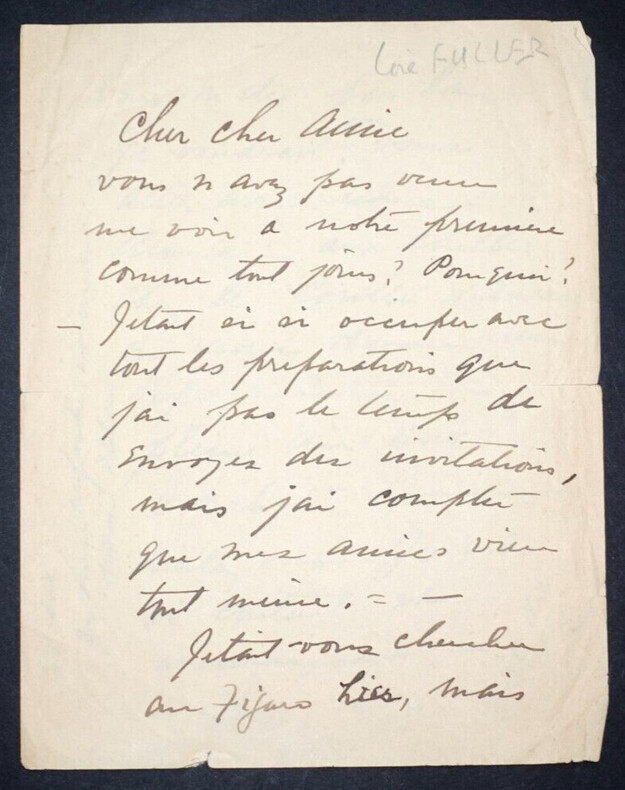 Loïe FULLER
Cher cher Amie
vous n avez pas venu
me voir a notre premiere
comme tout jours? Pourquoi?
– Jetait si si occuper avec
tout les preparations que
jai pas le temps de
envoyer des invitations,
mais jai compté
que mes amies vien
tout meme. = –
Jetait vous chercher
au Figaro hier, mais